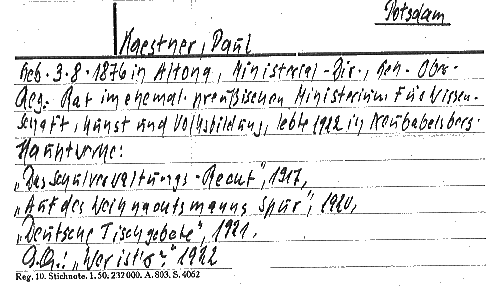 Potsdam
Kaestner, Paul
Geb. 3.8.1876 in Altona, Ministerial-Dir., Geh. Ob.-
Reg. Rat im ehemal. preußischen Ministerium für Wissen-
schaft, Kunst und Volksbildung, lebte 1922 in Neubabelsberg.
Hauptwerke:
„Das Schulverwaltungs-Recht", 1917,
„Auf des Weihnachtsmanns Spur", 1920,
„Deutsche Tischgebete", 1921.
„Wer ist's?" 1922
Reg. 10. Stichnote. 1. 50. 232 000. A. 803. S. 4062